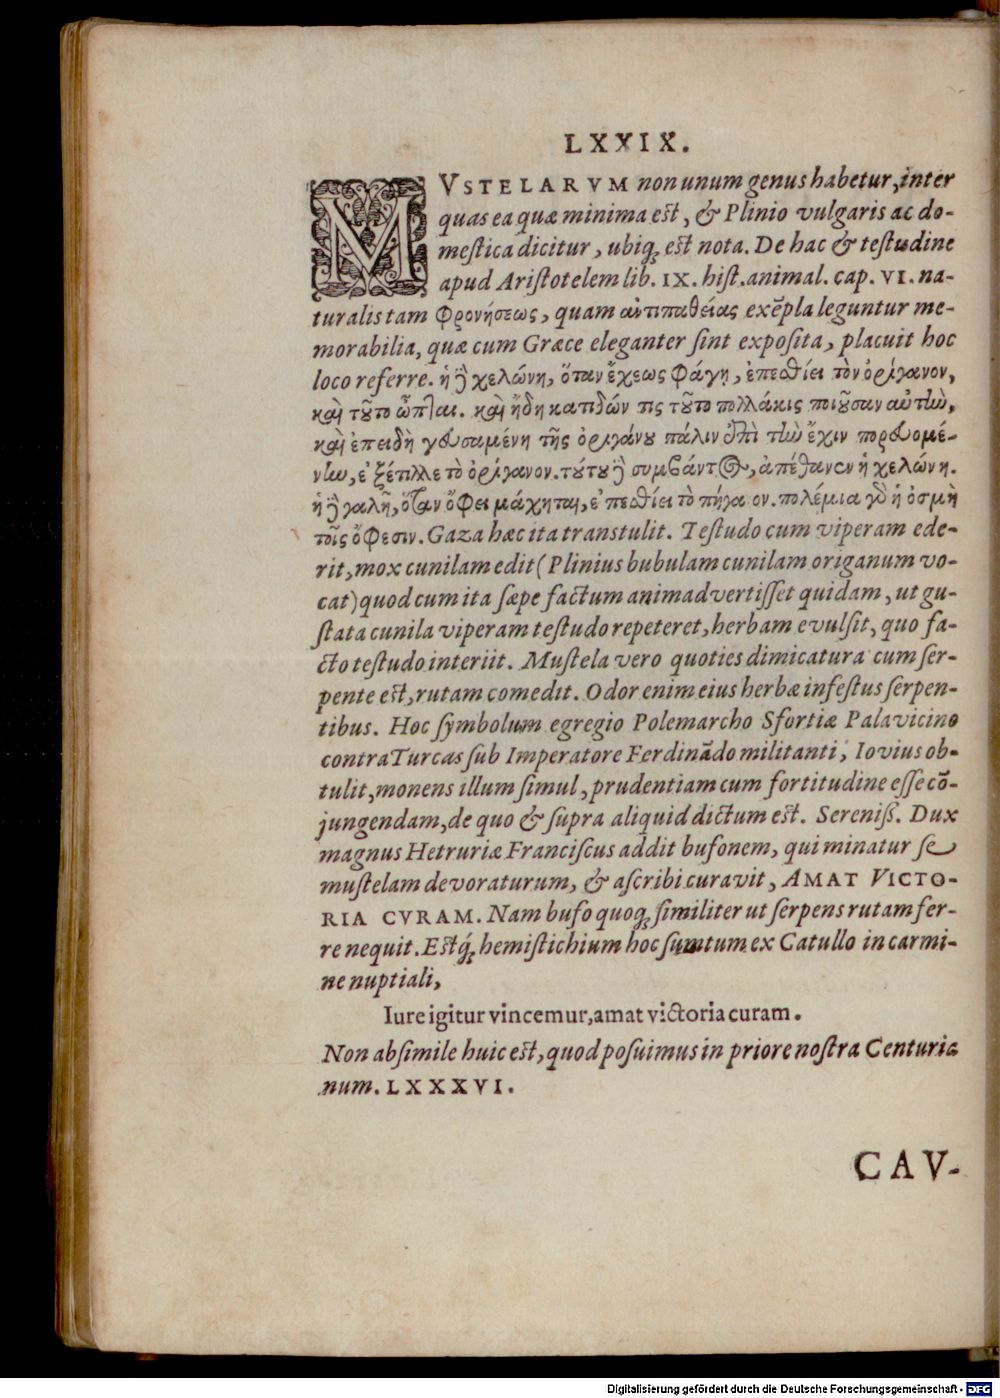 LXXIX.
MVSTELARVM non unum genus habetur, inter
quas ea quæ minima est, & Plinio vulgaris ac do-
mestica dicitur, ubiq; est nota. De hac & testudine
apud Aristotelem lib. IX. hist. animal. cap. VI. na-
turalis tam Φρονήσεως, quam ἀντιπαθείας exẽpla leguntur me-
morabilia, quæ cum Græce eleganter sint exposita, placuit hoc
loco referre. ἡ ἢ χελώνη, ὅταν ἔχεως Φάγῃ, ἐπεσθίει τὸν ὀρίγανον,
καὶ τȣ͂το ὦπται. καὶ ἤδη κατιδών τις τȣ͂το πολλάκις ποιȣ͂σαν αὐτὴν,
καὶ ἐπειδὴ γευσαμένη τῆς ὀριγάνȣ πάλιν ἐπὶ τὴν ἔχιν πορευομέ-
νην, ἐξέτιλλε τὸ ὀρίγανον. τȣ́τȣ ἢ συμβάντος, ἀπέθανεν ἡ χελώνη.
ἡ ἢ γαλῆ, ὅταν ὄφει μάχηται, ἐπεσθίει τὸ πήγα ον. πολέμια γὸ ἡ ὀσμὴ
τοῖς ὄφεσιν. Gaza hæc ita transtulit. Testudo cum viperam ede-
rit, mox cunilam edit (Plinius bubulam cunilam origanum vo-
cat) quod cum ita sæpe factum animadvertisset quidam, ut gu-
stata cunila viperam testudo repeteret, herbam evulsit, quo fa-
cto testudo interiit. Mustela vero quoties dimicatura cum ser-
pente est, rutam comedit. Odor enim eius herbæ infestus serpen-
tibus. Hoc symbolum egregio Polemarcho Sfortiæ Palavicino
contra Turcas sub Imperatore Ferdinãdo militanti, Iovius ob-
tulit, monens illum simul, prudentiam cum fortitudine esse cõ-
jungendam, de quo & supra aliquid dictum est. Sereniss. Dux
magnus Hetruriæ Franciscus addit bufonem, qui minatur se
mustelam devoraturum, & ascribi curavit, AMAT VICTO-
RIA CVRAM. Nam bufo quoq; similiter ut serpens rutam fer-
re nequit. Estq́; hemistichium hoc sumtum ex Catullo in carmi-
ne nuptiali,
Iure igitur vincemur, amat victoria curam.
Non absimile huic est, quod posuimus in priore nostra Centuria
num. LXXXVI.
CAV-
Digitalisierung gefördert durch die Deutsche Forschungsgemeinschaft - DFG